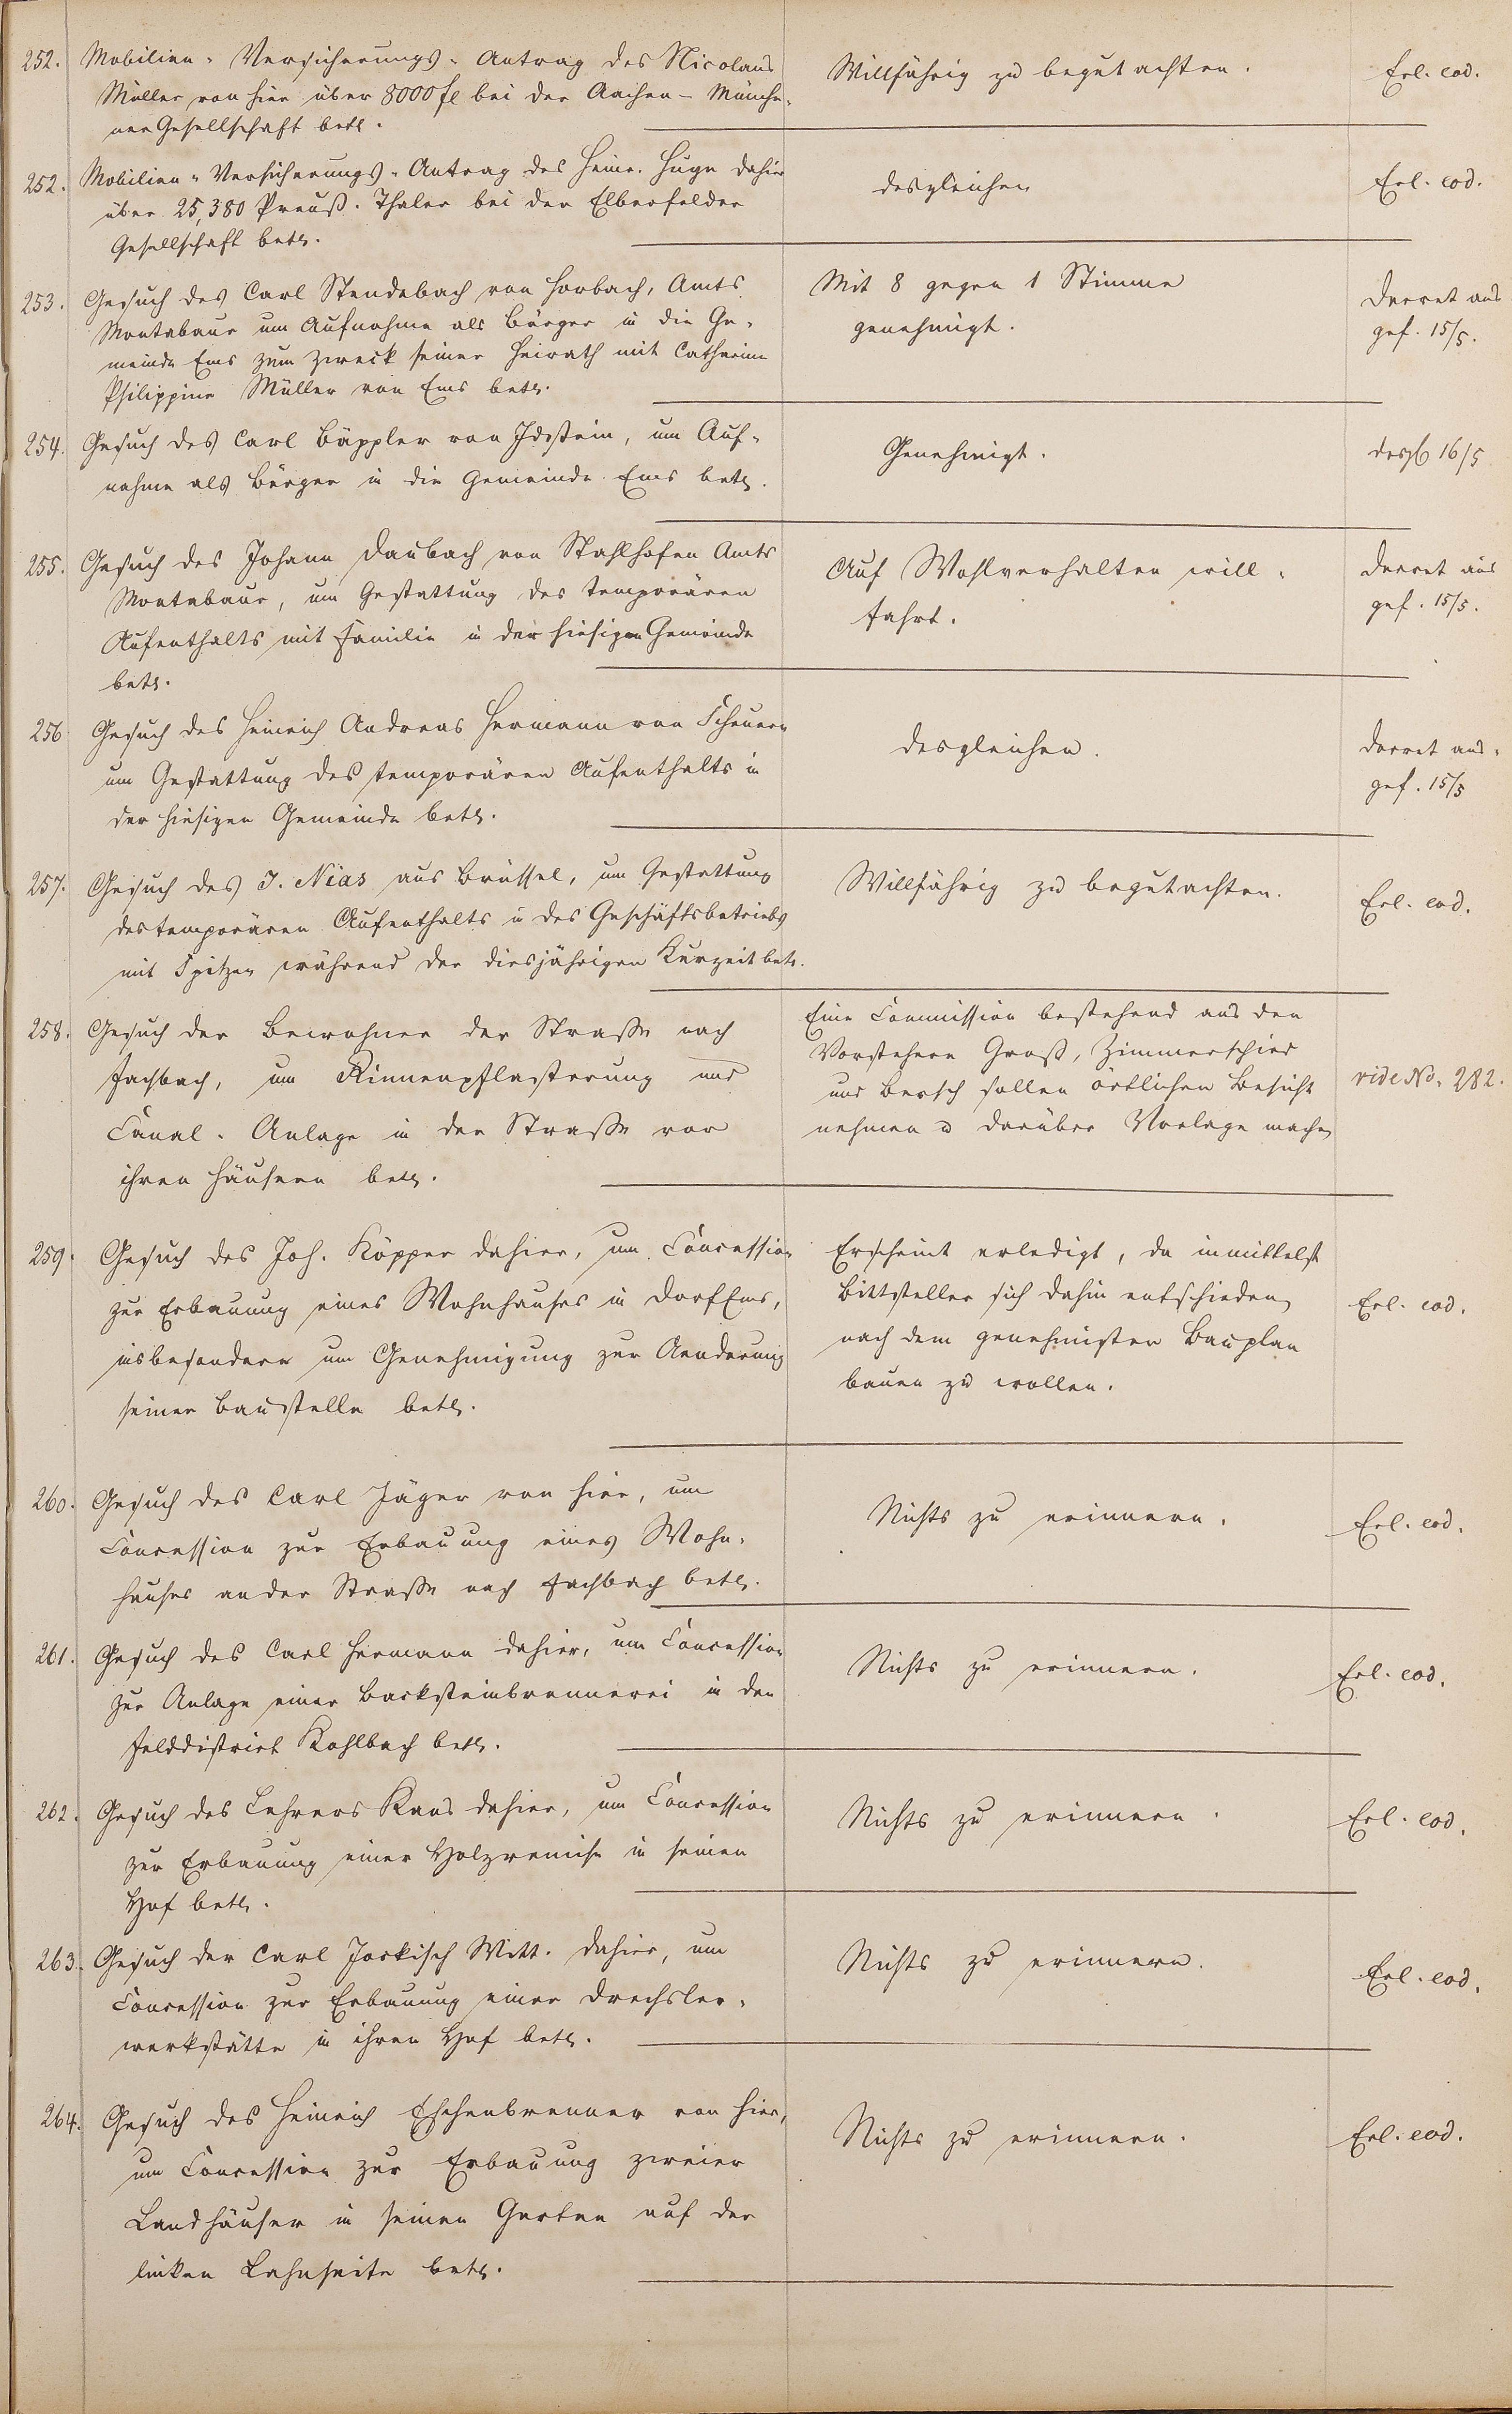 252. Mobilien-Versicherungs-Antrag des Nicolaus
Müller von hier über 8000 fl bei der Aachen-Münche-
ner Gesellschaft betr.
Willfährig zu begutachten.
Erl. eod.
252. Mobilien-Versicherungs-Antrag des Heinr. Huge dahier
über 25,380 Preuß. Thaler bei der Elberfelder
Gesellschaft betr.
desgleichen
Erl. eod.
253. Gesuch des Carl Stendebach von Horbach, Amts
Montabaur um Aufnahme als Bürger in die Ge-
meinde Ems zum Zweck seiner Heirath mit Catharine
Philippine Müller von Ems betr.
Mit 8 gegen 1 Stimme
genehmigt.
Decret aus
gef. 15/5.
254. Gesuch des Carl Bäppler von Idstein, um Auf-
nahme als Bürger in die Gemeinde Ems betr.
Genehmigt.
desgl 16/5
255. Gesuch des Johann Daubach von Stahlhofen Amts
Montabaur, um Gestattung des temporären
Aufenthalts mit Familie in der hiesigen Gemeinde
betr.
Auf Wohlverhalten will-
fahrt.
Decret aus
gef. 15/5.
256 Gesuch des Heinrich Andreas Hermann von Scheuern
um Gestattung des temporären Aufenthalts in
der hiesigen Gemeinde betr.
desgleichen.
Decret aus-
gef. 15/5
257. Gesuch des J. Nias aus Brüssel, um Gestattung
des temporären Aufenthalts u des Geschäftsbetriebs
mit Spitzen während der diesjährigen Kurzeit betr.
Willfährig zu begutachten.
Erl. eod.
258. Gesuch der Bewohner der Straße nach
Fachbach, um Rinnenpflasterung und
Canal-Anlage in der Straße vor
ihren Häusern betr.
Eine Commission bestehend aus den
Vorstehern Groß, Zimmerschied
und Bersch sollen örtlichen Besicht
nehmen u darüber Vorlage machen
vide No. 282.
259. Gesuch des Joh. Köpper dahier, um Concession
zur Erbauung eines Wohnhauses in Dorf Ems,
insbesondere um Genehmigung zur Aenderung
seiner Baustelle betr.
Erscheint erledigt, da inmittelst
Bittsteller sich dahin entschieden
nach dem genehmigten Bauplan
bauen zu wollen.
Erl. eod.
260. Gesuch des Carl Jäger von hier, um
Concession zur Erbauung eines Wohn-
hauses an der Straße nach Fachbach betr.
Nichts zu erinnern.
Erl. eod.
261. Gesuch des Carl Hermann dahier, um Concession
zur Anlage einer Backsteinbrennerei in dem
Felddistrict Kohlbach betr.
Nichts zu erinnern.
Erl. eod.
262. Gesuch des Lehrers Kaus dahier, um Concession
zur Erbauung einer Holzremise in seinem
Hof betr.
Nichts zu erinnern.
Erl. eod.
263. Gesuch der Carl Jockisch Witt. dahier, um
Concession zur Erbauung einer Drechsler-
werkstätte in ihrem Hof betr.
Nichts zu erinnern.
Erl. eod.
264. Gesuch des Heinrich Eschenbrenner von hier,
um Concession zur Erbauung zweier
Landhäuser in seinem Garten auf der
linken Lahnseite betr.
Nichts zu erinnern.
Erl. eod.